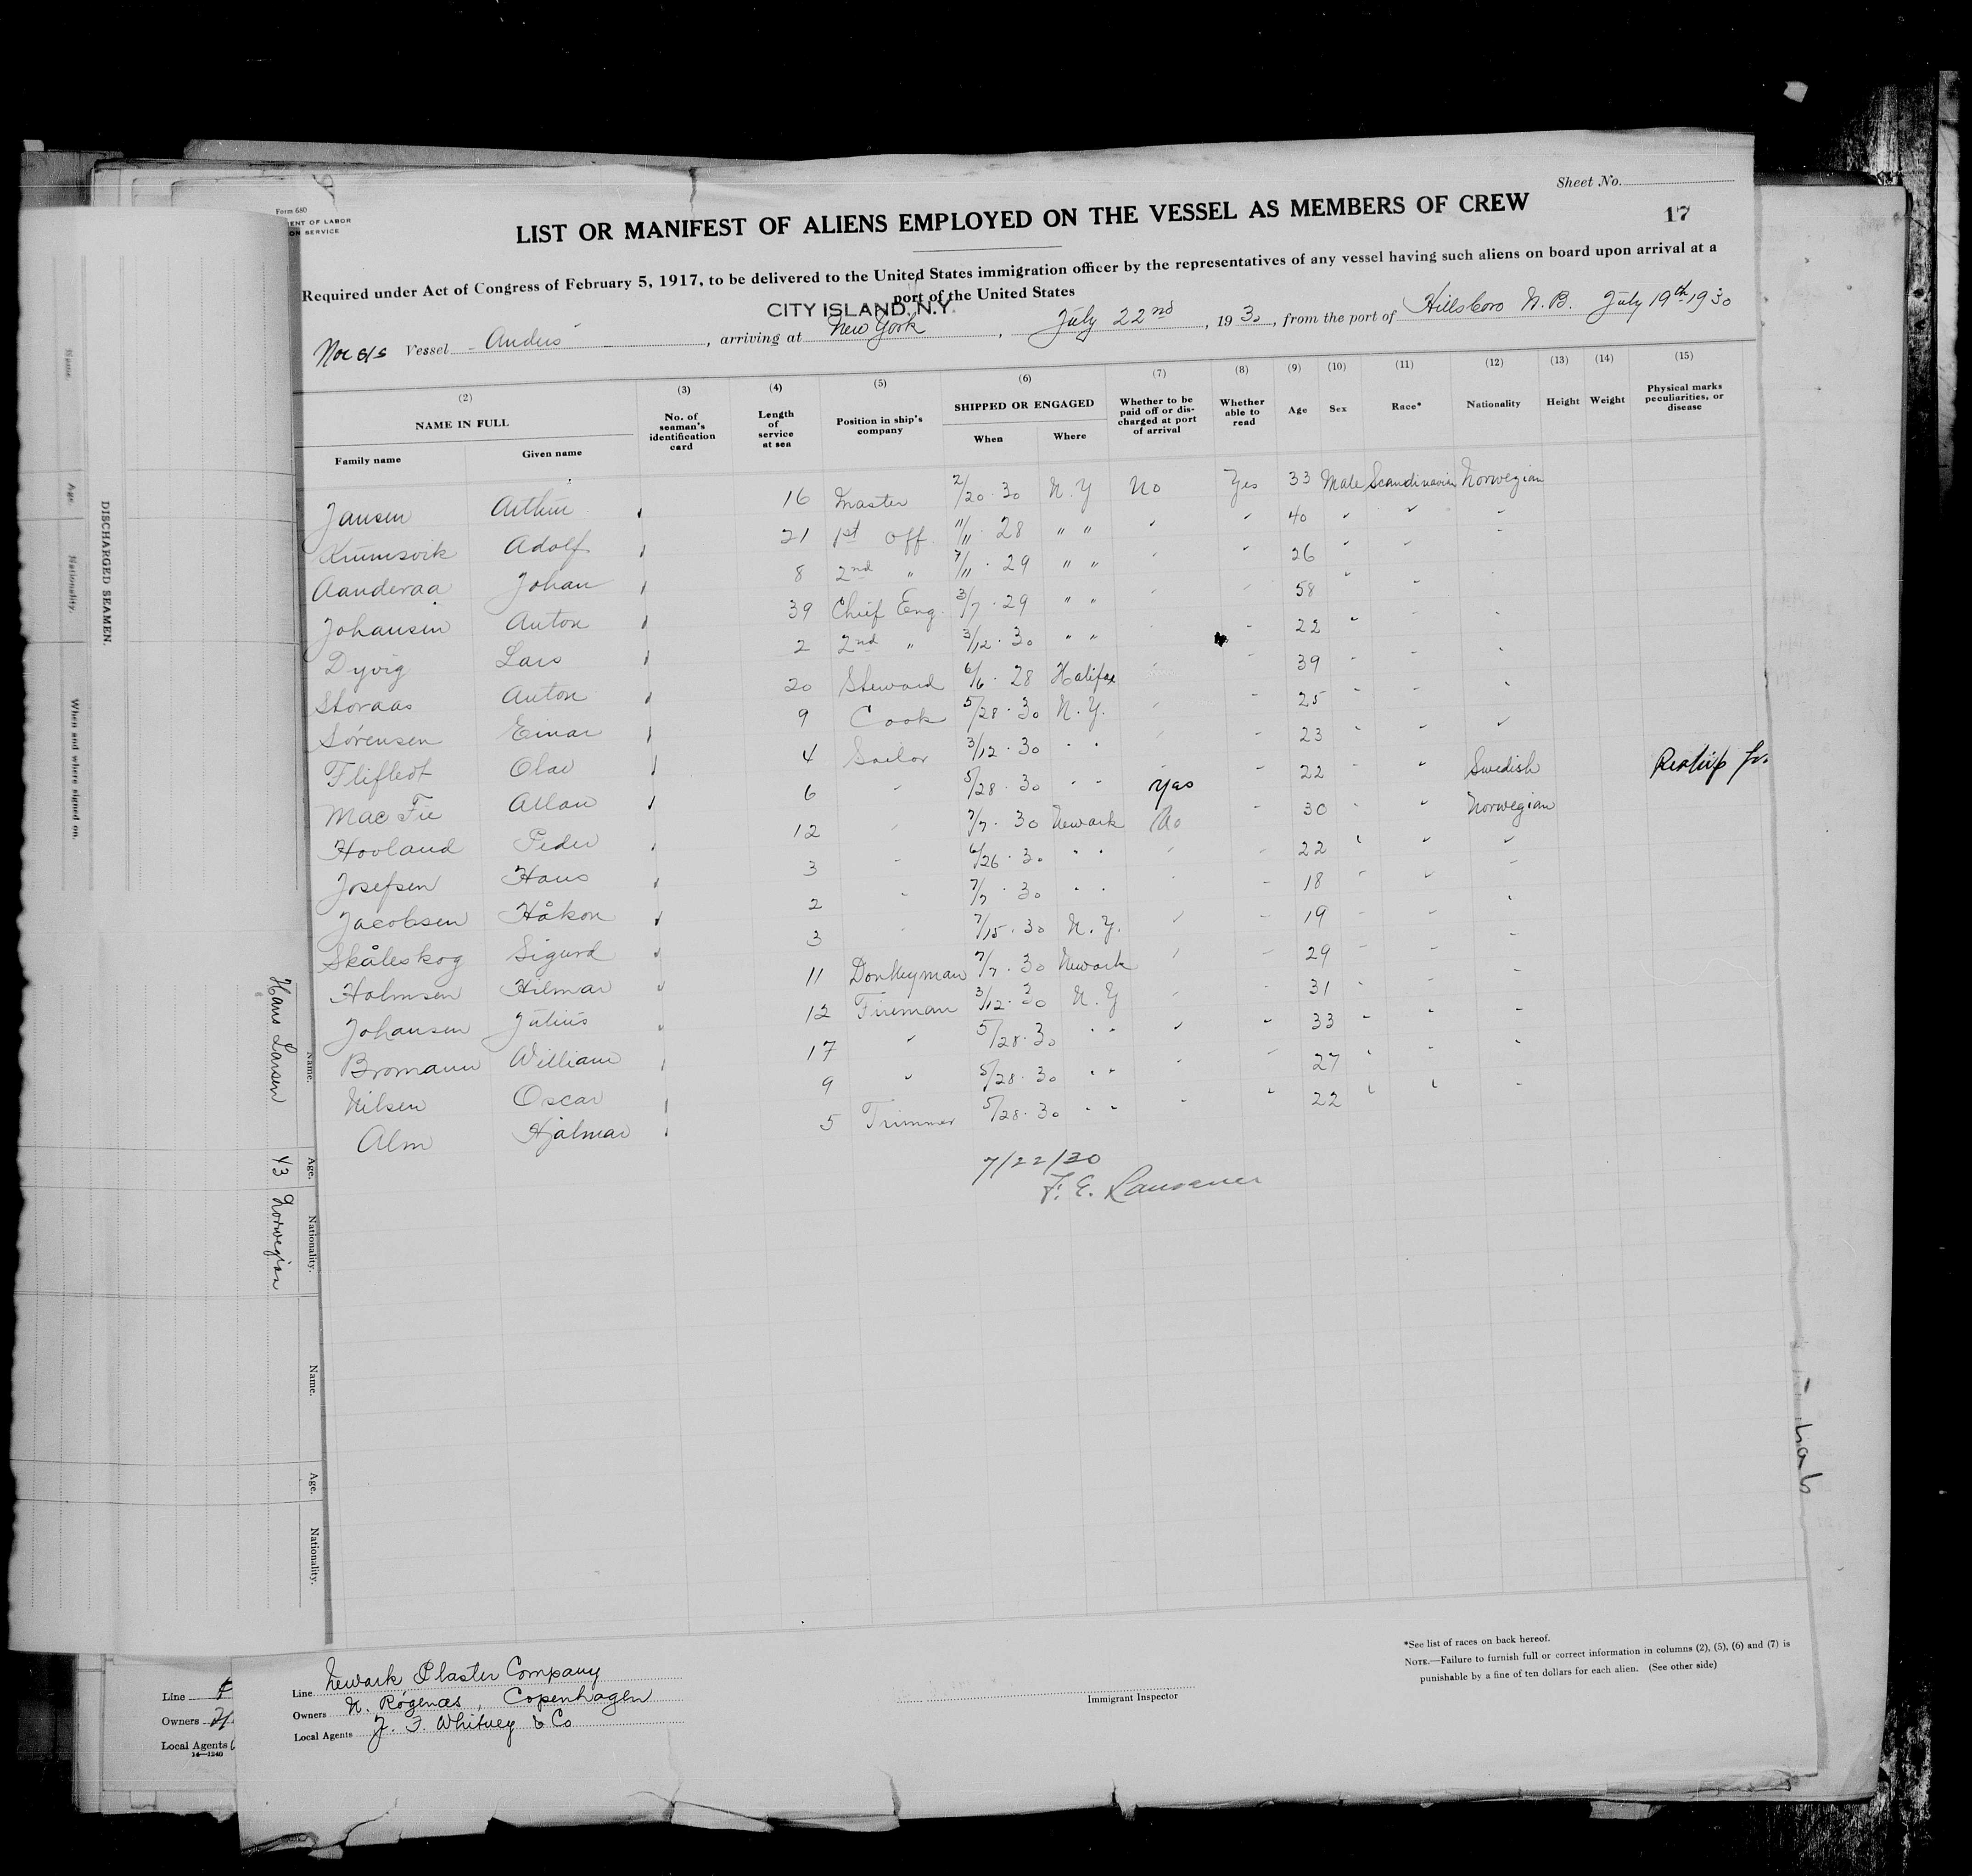 Sheet No.
Form 680
ENT OF LABOR
ON SERVICE
LIST OR MANIFEST OF ALIENS EMPLOYED ON THE VESSEL AS MEMBERS OF CREW
17
Required under Act of Congress of February 5, 1917, to be delivered to the United States immigration officer by the representatives of any vessel having such aliens on board upon arrival at a
port of the United States
CITY ISLAND, N.Y.
Nor S/S Vessel Anders, arriving at New York, July 22nd, 1930, from the port of Hillsboro N.B. July 19th 1930
(2) (3) (4) (5) (6) (7) (8) (9) (10) (11) (12) (13) (14) (15)
NAME IN FULL No. of seaman's identification card Length of service at sea Position in ship's company SHIPPED OR ENGAGED Whether to be paid off or discharged at port of arrival Whether able to read Age Sex Race* Nationality Height Weight Physical marks peculiarities, or disease
Family name Given name When Where
Jansen Arthur 16 Master 2/20·30 N.Y No Yes 33 Male Scandinavian Norwegian
Krumsvik Adolf 21 1st Off. 11/11·28 " " 40
Aanderaa Johan 8 2nd " 7/11·29 " " 26
Johansen Anton 39 Chief Eng. 3/7·29 " " 58
Dyvig Lars 2 2nd " 3/12·30 " " 22
Storaas Anton 20 Steward 6/6·28 Halifax 39
Sørensen Einar 9 Cook 5/28·30 N.Y. 25
Flifledt Olav 4 Sailor 3/12·30 " " 23
Mac Fie Allan 6 " 5/28·30 " " Yes 22 Swedish Reship for.
Hovland Peder 12 " 7/7·30 Newark No 30 Norwegian
Josefsen Hans 3 " 6/26·30 " " 22
Jacobsen Håkon 2 " 7/7·30 " " 18
Skåleskog Sigurd 3 " 7/15·30 N.Y. 19
Holmsen Hilmar 11 Donkeyman 7/7·30 Newark 29
Johansen Julius 12 Fireman 3/12·30 N.Y 31
Bromann William 17 " 5/28·30 " " 33
Nilsen Oscar 9 " 5/28·30 " " 27
Alm Hjalmar 5 Trimmer 5/28·30 " " 22
7/22/30
F. E.
DISCHARGED SEAMEN.
Name.
Age.
Nationality.
When and where signed on.
Hans Larsen 43 Norwegian
Name.
Age.
Nationality.
Name.
Age.
Nationality.
Line
Owners
Local Agents
14—1240
Line Newark Plaster Company
Owners N. Rogenæs, Copenhagen
Local Agents J. F. Whitney & Co
Immigrant Inspector
*See list of races on back hereof.
NOTE.—Failure to furnish full or correct information in columns (2), (5), (6) and (7) is
punishable by a fine of ten dollars for each alien. (See other side)